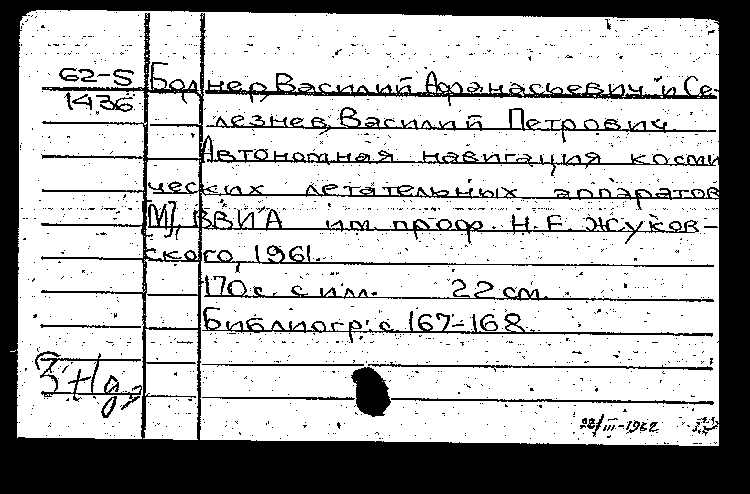 62-5
1436
Боднер, Василий Афанасьевич и Се-
лезнев, Василий Петрович.
Автономная навигация косми
ческих летательных аппаратов
[М], ВВИА им. проф. Н. Е. Жуков-
ского, 1961.
170 с. с илл. 22 см.
Библиогр: с 167-168.
22/III-1962